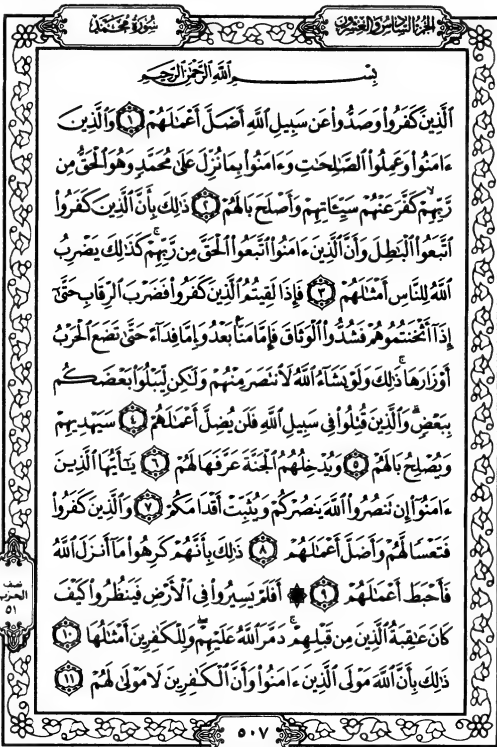 الجزء السادس والعشرون
سورة محمد
بِسْمِ ٱللَّهِ ٱلرَّحْمَٰنِ ٱلرَّحِيمِ
ٱلَّذِينَ كَفَرُوا۟ وَصَدُّوا۟ عَن سَبِيلِ ٱللَّهِ أَضَلَّ أَعْمَٰلَهُمْ ١ وَٱلَّذِينَ
ءَامَنُوا۟ وَعَمِلُوا۟ ٱلصَّٰلِحَٰتِ وَءَامَنُوا۟ بِمَا نُزِّلَ عَلَىٰ مُحَمَّدٍ وَهُوَ ٱلْحَقُّ مِن
رَّبِّهِمْ ۙ كَفَّرَ عَنْهُمْ سَيِّـَٔاتِهِمْ وَأَصْلَحَ بَالَهُمْ ٢ ذَٰلِكَ بِأَنَّ ٱلَّذِينَ كَفَرُوا۟
ٱتَّبَعُوا۟ ٱلْبَٰطِلَ وَأَنَّ ٱلَّذِينَ ءَامَنُوا۟ ٱتَّبَعُوا۟ ٱلْحَقَّ مِن رَّبِّهِمْ ۚ كَذَٰلِكَ يَضْرِبُ
ٱللَّهُ لِلنَّاسِ أَمْثَٰلَهُمْ ٣ فَإِذَا لَقِيتُمُ ٱلَّذِينَ كَفَرُوا۟ فَضَرْبَ ٱلرِّقَابِ حَتَّىٰٓ
إِذَآ أَثْخَنتُمُوهُمْ فَشُدُّوا۟ ٱلْوَثَاقَ فَإِمَّا مَنًّۢا بَعْدُ وَإِمَّا فِدَآءً حَتَّىٰ تَضَعَ ٱلْحَرْبُ
أَوْزَارَهَا ۚ ذَٰلِكَ وَلَوْ يَشَآءُ ٱللَّهُ لَٱنتَصَرَ مِنْهُمْ وَلَٰكِن لِّيَبْلُوَا۟ بَعْضَكُم
بِبَعْضٍ ۗ وَٱلَّذِينَ قُتِلُوا۟ فِى سَبِيلِ ٱللَّهِ فَلَن يُضِلَّ أَعْمَٰلَهُمْ ٤ سَيَهْدِيهِمْ
وَيُصْلِحُ بَالَهُمْ ٥ وَيُدْخِلُهُمُ ٱلْجَنَّةَ عَرَّفَهَا لَهُمْ ٦ يَٰٓأَيُّهَا ٱلَّذِينَ
ءَامَنُوٓا۟ إِن تَنصُرُوا۟ ٱللَّهَ يَنصُرْكُمْ وَيُثَبِّتْ أَقْدَامَكُمْ ٧ وَٱلَّذِينَ كَفَرُوا۟
فَتَعْسًا لَّهُمْ وَأَضَلَّ أَعْمَٰلَهُمْ ٨ ذَٰلِكَ بِأَنَّهُمْ كَرِهُوا۟ مَآ أَنزَلَ ٱللَّهُ
فَأَحْبَطَ أَعْمَٰلَهُمْ ٩ ۞ أَفَلَمْ يَسِيرُوا۟ فِى ٱلْأَرْضِ فَيَنظُرُوا۟ كَيْفَ
كَانَ عَٰقِبَةُ ٱلَّذِينَ مِن قَبْلِهِمْ ۚ دَمَّرَ ٱللَّهُ عَلَيْهِمْ ۖ وَلِلْكَٰفِرِينَ أَمْثَٰلُهَا ١٠
ذَٰلِكَ بِأَنَّ ٱللَّهَ مَوْلَى ٱلَّذِينَ ءَامَنُوا۟ وَأَنَّ ٱلْكَٰفِرِينَ لَا مَوْلَىٰ لَهُمْ ١١
نصف
الحزب
٥١
٥٠٧